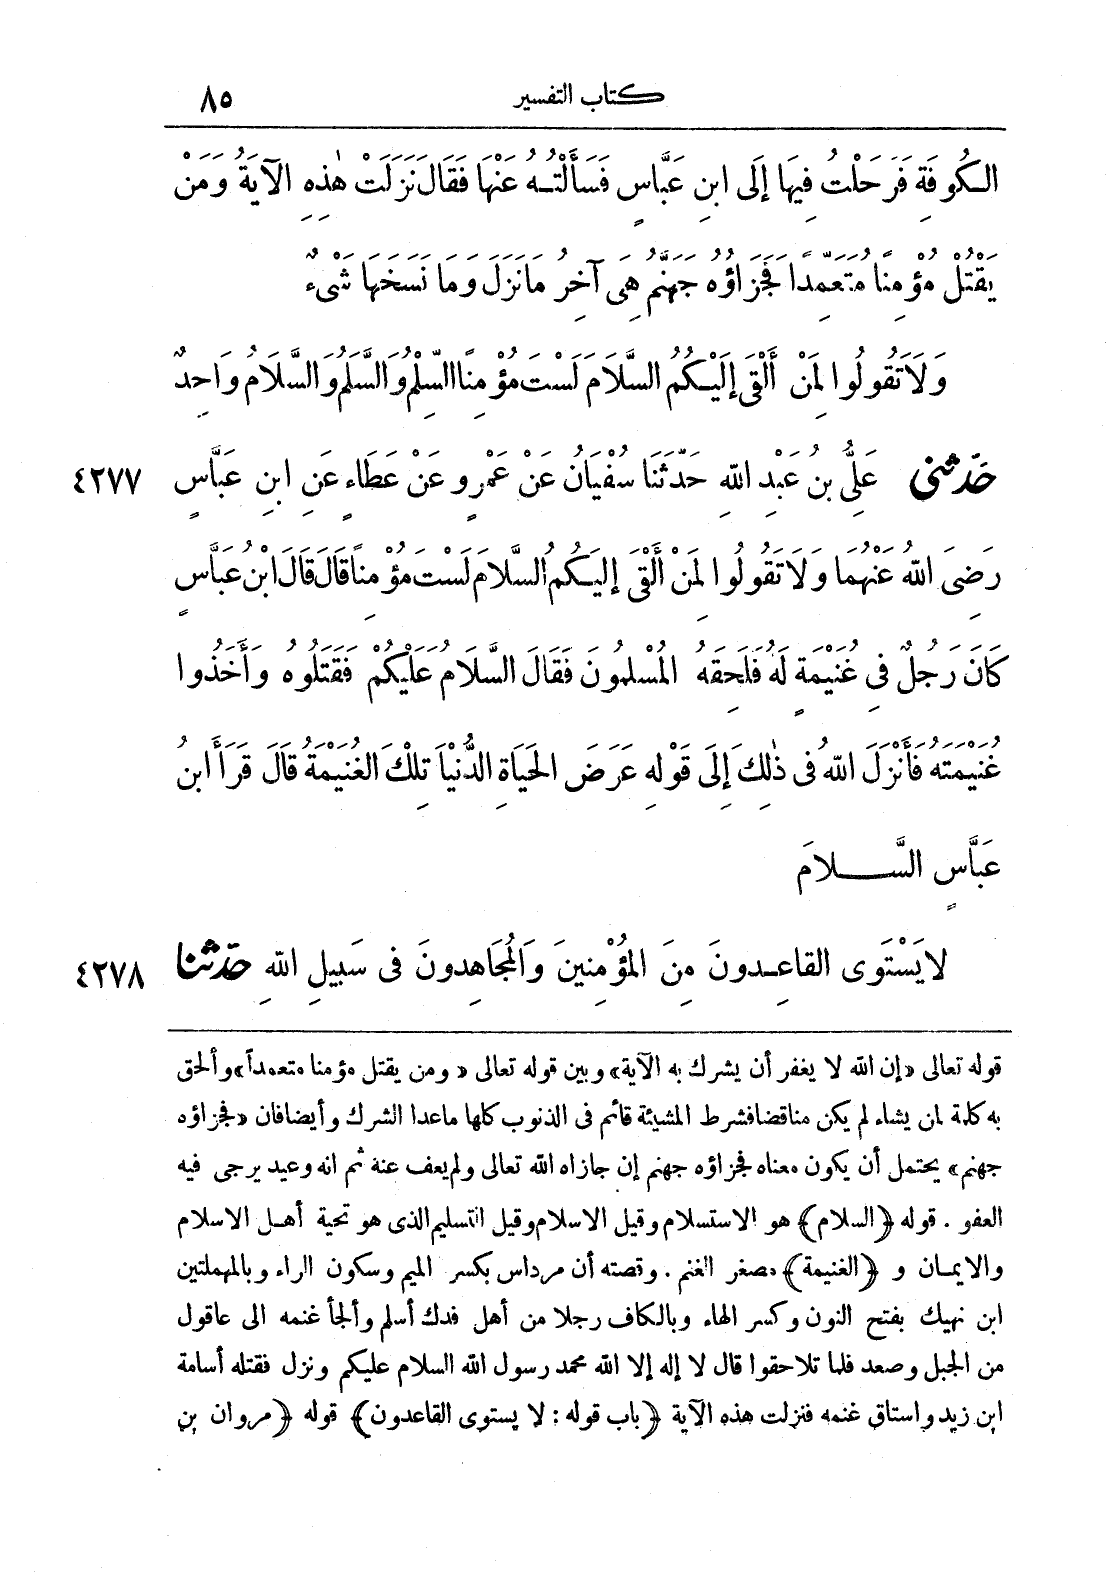 كتاب التفسير ٨٥
الكُوفَةِ فَرَحَلْتُ فِيهَا إِلَى ابنِ عَبَّاسٍ فَسَأَلْتُهُ عَنْهَا فَقَالَ نَزَلَتْ هٰذِهِ الآيَةُ وَمَنْ
يَقْتُلْ مُؤْمِنًا مُتَعَمِّدًا فَجَزَاؤُهُ جَهَنَّمُ هِىَ آخِرُ مَا نَزَلَ وَمَا نَسَخَهَا شَىْءٌ
وَلَا تَقُولُوا لِمَنْ أَلْقَى إِلَيْكُمُ السَّلَامَ لَسْتَ مُؤْمِنًا السِّلْمُ وَالسَّلَمُ وَالسَّلَامُ وَاحِدٌ
حَدَّثَنِى عَلِىُّ بنُ عَبْدِ اللهِ حَدَّثَنَا سُفْيَانُ عَنْ عَمْرٍو عَنْ عَطَاءٍ عَنِ ابنِ عَبَّاسٍ ٤٢٧٧
رَضِىَ اللهُ عَنْهُمَا وَلَا تَقُولُوا لِمَنْ أَلْقَى إِلَيْكُمُ السَّلَامَ لَسْتَ مُؤْمِنًا قَالَ قَالَ ابْنُ عَبَّاسٍ
كَانَ رَجُلٌ فِى غُنَيْمَةٍ لَهُ فَلَحِقَهُ المُسْلِمُونَ فَقَالَ السَّلَامُ عَلَيْكُمْ فَقَتَلُوهُ وَأَخَذُوا
غُنَيْمَتَهُ فَأَنْزَلَ اللهُ فِى ذٰلِكَ إِلَى قَوْلِهِ عَرَضَ الحَيَاةِ الدُّنْيَا تِلْكَ الغُنَيْمَةُ قَالَ قَرَأَ ابنُ
عَبَّاسٍ السَّلَامَ
لَا يَسْتَوِى القَاعِدُونَ مِنَ المُؤْمِنِينَ وَالمُجَاهِدُونَ فِى سَبِيلِ اللهِ حَدَّثَنَا ٤٢٧٨
قوله تعالى «إن الله لا يغفر أن يشرك به الآية» وبين قوله تعالى « ومن يقتل مؤمنا متعمداً» وألحق
به كلمة لمن يشاء لم يكن مناقضا فشرط المشيئة قائم فى الذنوب كلها ماعدا الشرك وأيضا فان «فجزاؤه
جهنم» يحتمل أن يكون معناه فجزاؤه جهنم إن جازاه الله تعالى ولم يعف عنة ثم انه وعيد يرجى فيه
العفو . قوله ﴿السلام﴾ هو الاستسلام وقيل الاسلام وقيل التسليم الذى هو تحية أهل الاسلام
والايمان و ﴿الغنيمة﴾ مصغر الغنم . وقصته أن مرداس بكسر الميم وسكون الراء وبالمهملتين
ابن نهيك بفتح النون وكسر الهاء وبالكاف رجلا من أهل فدك أسلم وألجأ غنمه الى عاقول
من الجبل وصعد فلما تلاحقوا قال لا إله إلا الله محمد رسول الله السلام عليكم ونزل فقتله أسامة
ابن زيد واستاق غنمه فنزلت هذه الآية ﴿باب قوله : لا يستوى القاعدون﴾ قوله ﴿مروان بن